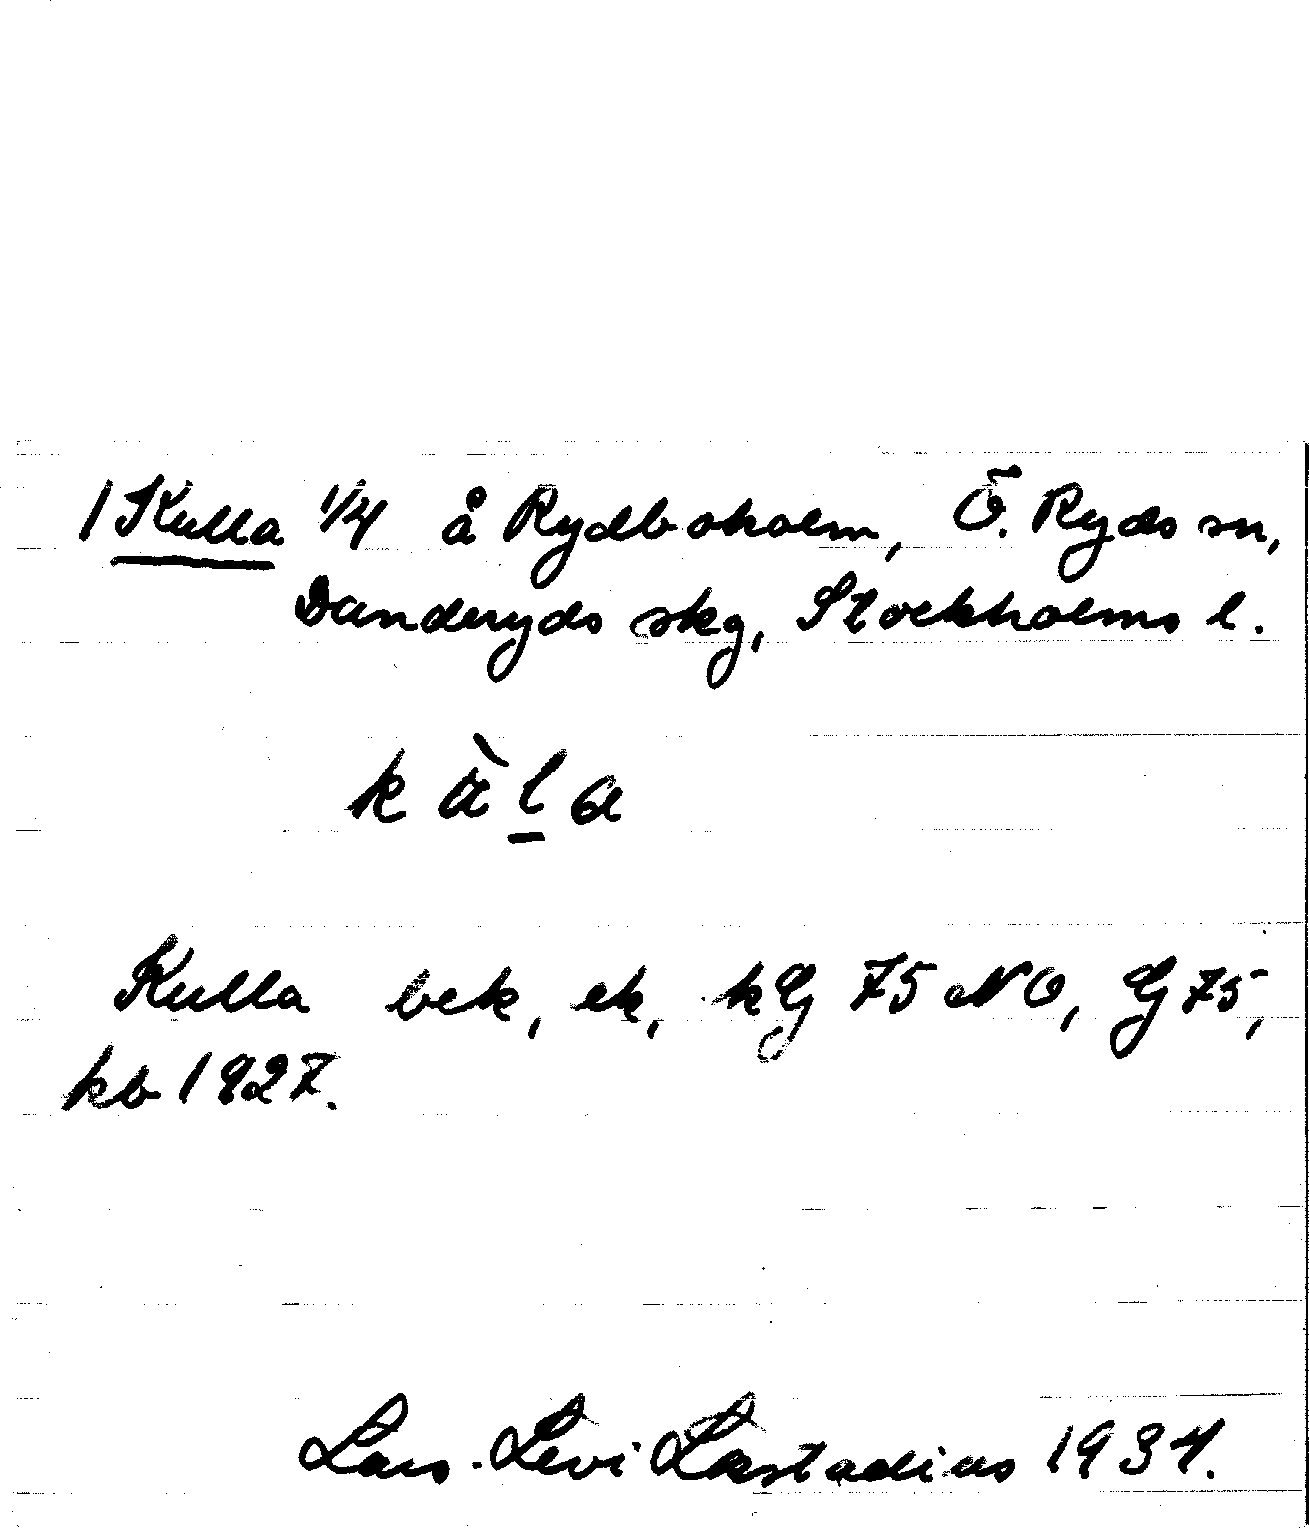 1 Kulla 1/4 å Rydboholm, Ö. Ryds sn,
Danderyds skg, Stockholms l.
k ὰ l a
Kulla bek, ek, kG 75 NO, G 75,
kb 1827.
Lars-Levi Læstadius 1934.